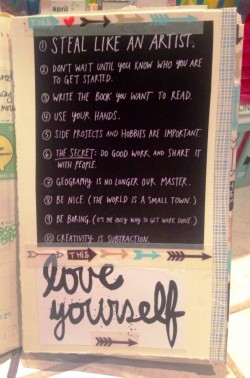 THIS
① STEAL LIKE AN ARTIST.
② DON'T WAIT UNTIL YOU KNOW WHO YOU ARE
TO GET STARTED.
③ WRITE THE BOOK YOU WANT TO READ.
④ USE YOUR HANDS.
⑤ SIDE PROJECTS AND HOBBIES ARE IMPORTANT.
⑥ THE SECRET: DO GOOD WORK AND SHARE IT
WITH PEOPLE.
⑦ GEOGRAPHY IS NO LONGER OUR MASTER.
⑧ BE NICE. (THE WORLD IS A SMALL TOWN.)
⑨ BE BORING. (IT'S THE ONLY WAY TO GET WORK DONE.)
⑩ CREATIVITY IS SUBTRACTION.
THIS
love
yourself